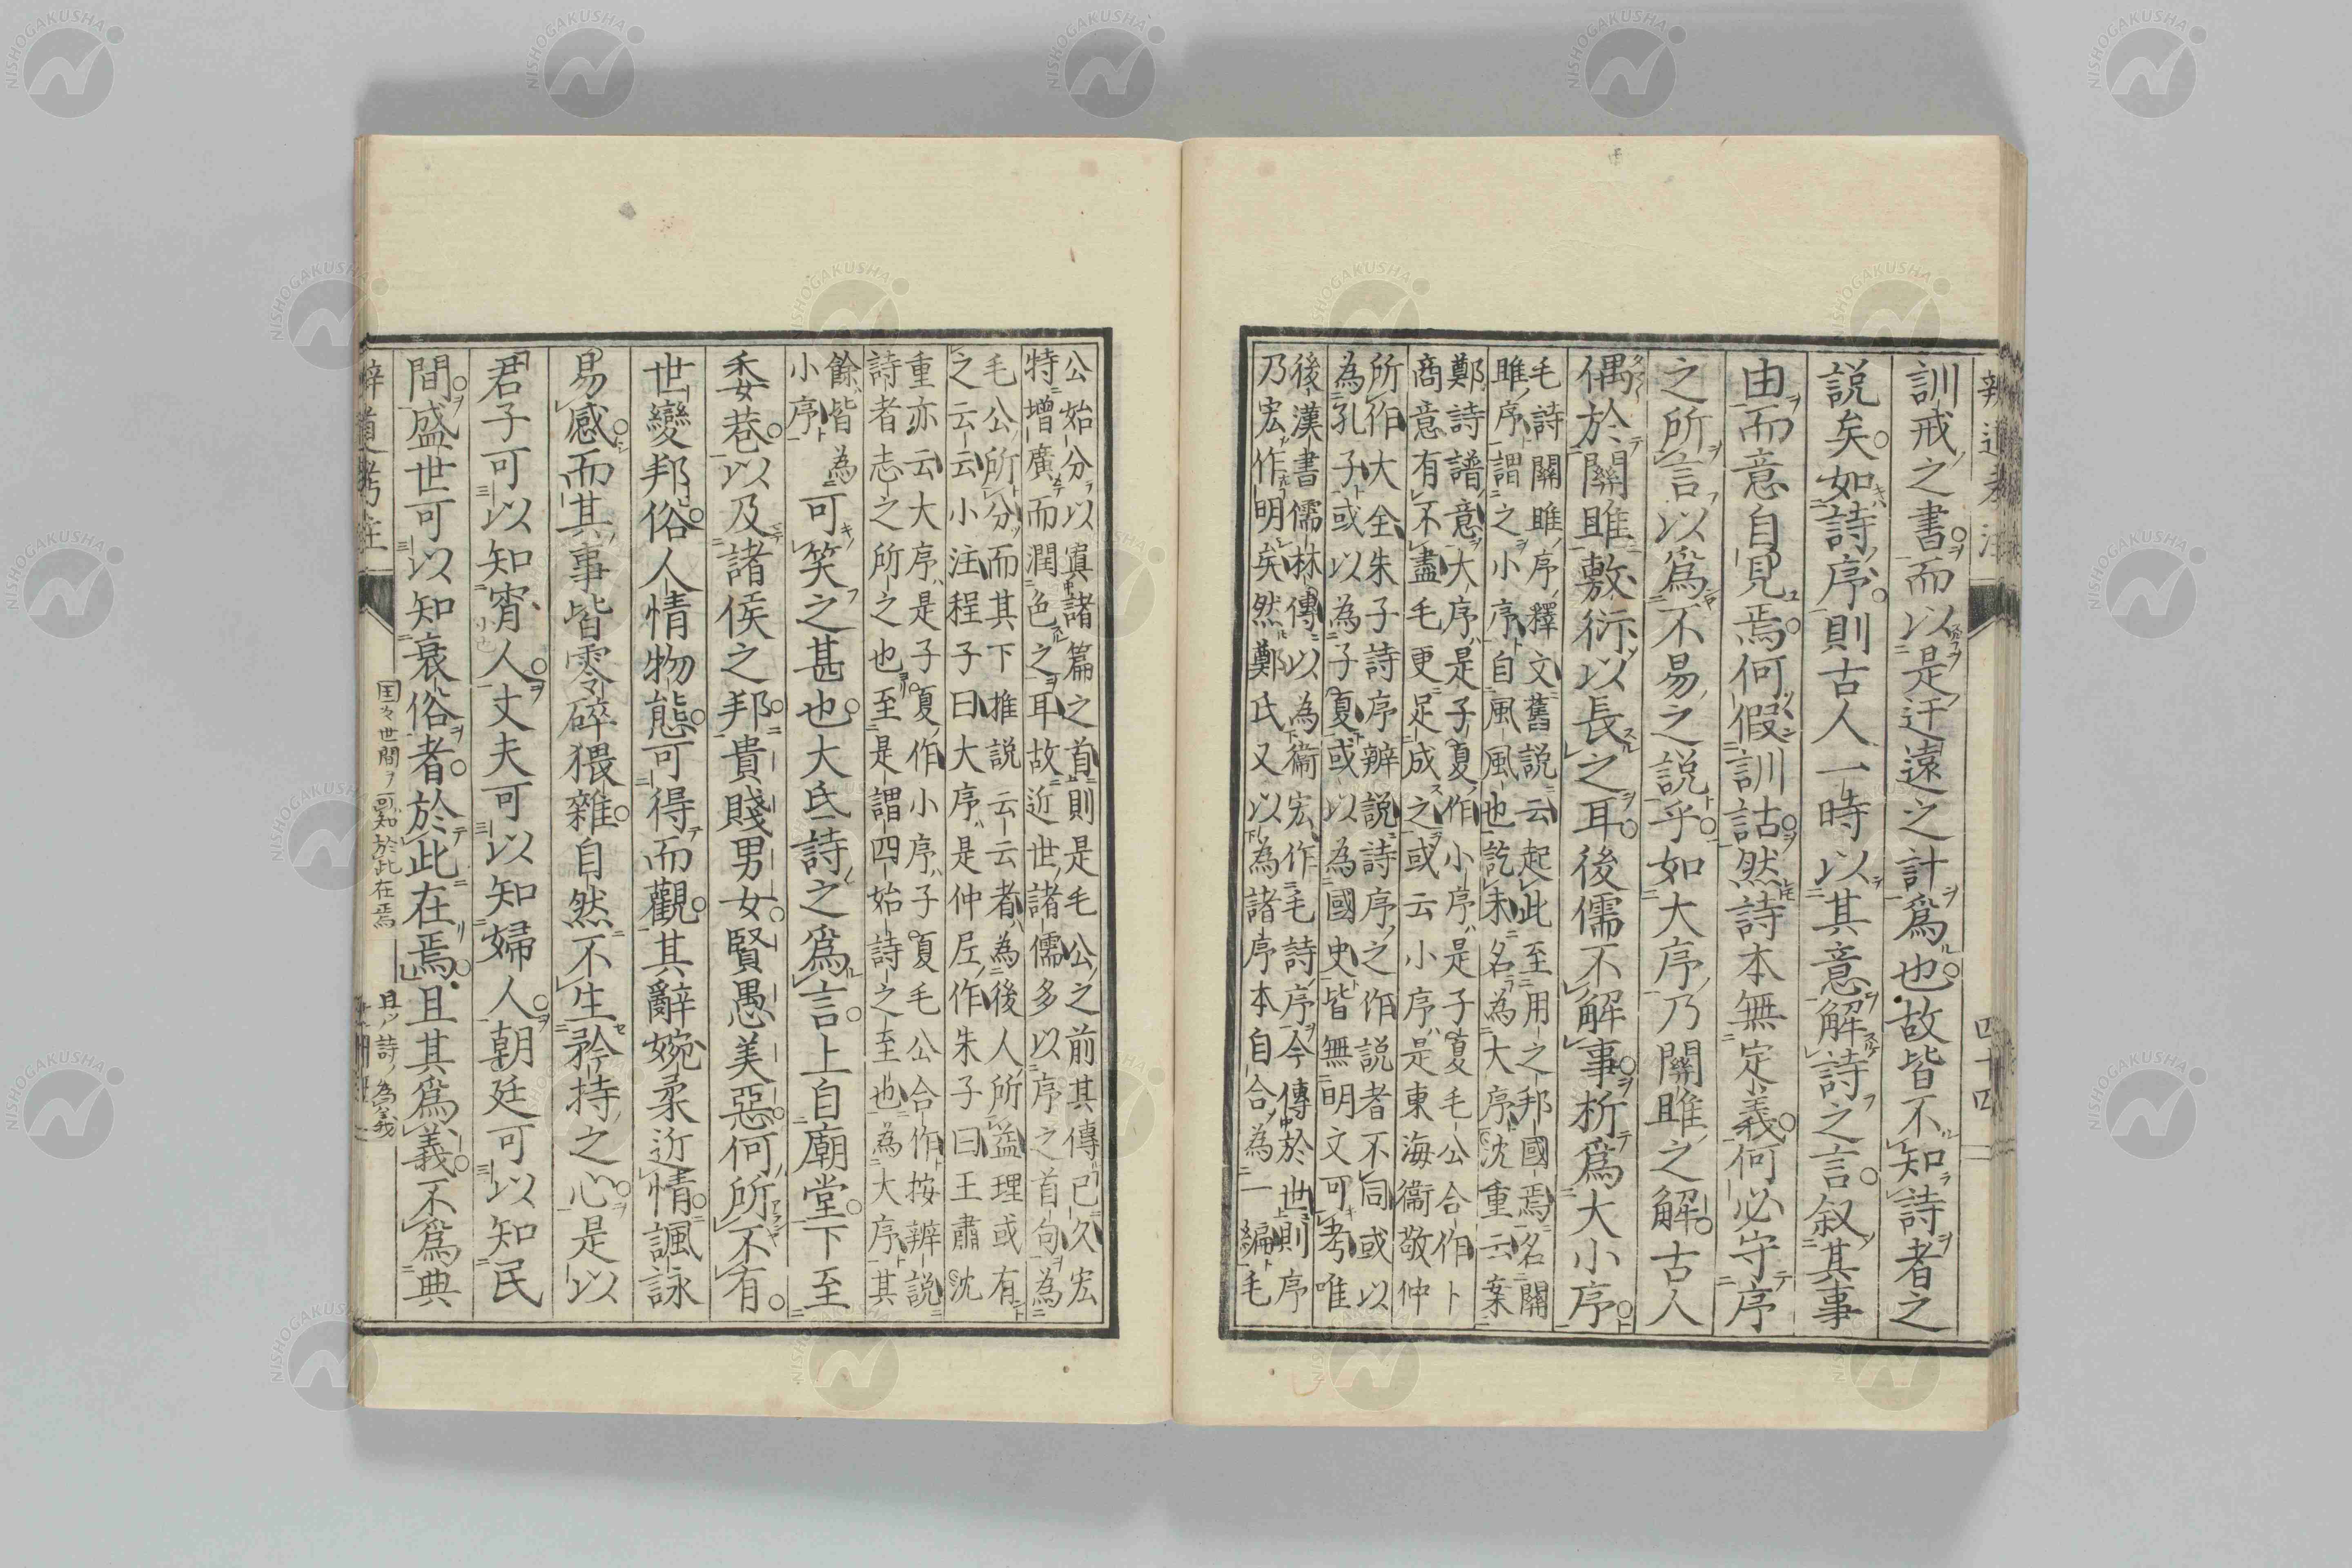 辨道考注
四十四
訓戒之書而以是迂遠之計爲也故皆不知詩者之
説矣如詩序則古人一時以其意解詩之言叙其事
由而意自見焉何假訓詁然詩本無定義何必守序
之所言以爲不易之説乎如大序乃關雎之解古人
偶於關雎敷衍以長之耳後儒不解事析爲大小序
毛詩關雎序釋文舊説云起此至用之邦國焉名關
雎序謂之小序自風風也訖末名為大序沈重云案
鄭詩譜意大序是子夏作小序是子夏毛公合作卜
商意有不盡毛更足成之或云小序是東海衞敬仲
所作大全朱子詩序辨説詩序之作説者不同或以
為孔子或以為子夏或以為國史皆無明文可考唯
後漢書儒林傳以為衞宏作毛詩序今傳於世則序
乃宏作明矣然鄭氏又以為諸序本自合為一編毛
公始分以寘諸篇之首則是毛公之前其傳已久宏
特増廣而潤色之耳故近世諸儒多以序之首句為
毛公所分而其下推説云云者為後人所益理或有
之云云小注程子曰大序是仲尼作朱子曰王肅沈
重亦云大序是子夏作小序子夏毛公合作按辨説
詩者志之所之也至是謂四始詩之至也為大序其
餘皆為
小序
可笑之甚也大氐詩之爲言上自廟堂下至
委巷以及諸侯之邦貴賤男女賢愚美惡何所不有
世變邦俗人情物態可得而觀其辭婉柔近情諷詠
易感而其事皆零碎猥雜自然不生矜持之心是以
君子可以知宵人丈夫可以知婦人朝廷可以知民
小也
間盛世可以知衰俗者於此在焉且其爲義不爲典
国々世間ヲ可知於此在焉
且ツ詩ノ為義
辨道考注